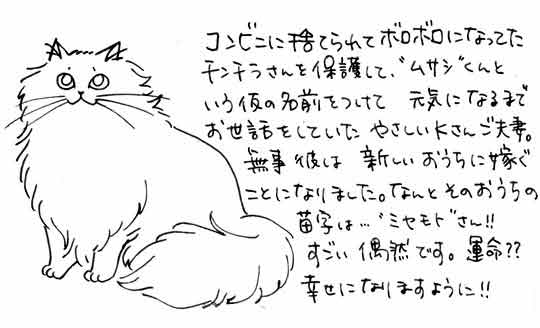 コンビニに捨てられてボロボロになってた
チンチラさんを保護して、"ムサシ"くんと
いう仮の名前をつけて 元気になるまで
お世話をしていた やさしいKさんご夫妻。
無事 彼は 新しいおうちに嫁ぐ
ことになりました。なんとそのおうちの
苗字は…"ミヤモト"さん!!
すごい 偶然です。運命??
幸せになりますように!!